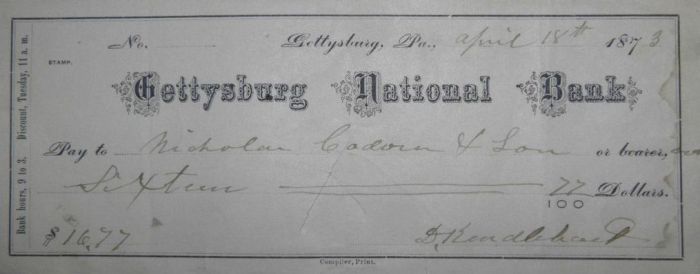 No. Gettysburg, Pa., April 18th 1873
STAMP.
Gettysburg National Bank
Pay to Nicholas Codori & Son or bearer,
Sixteen 77/100 Dollars.
$16,77 D. Kendlehart
Compiler, Print.
Bank hours, 9 to 3. Discount, Tuesday, 11 a. m.